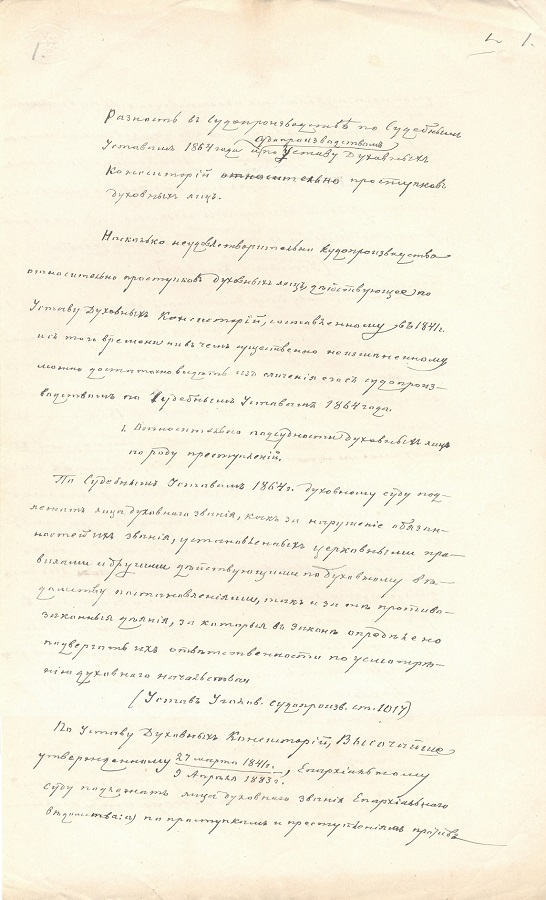 1.
1.
Разность въ Судопроизводствѣ по Судебнымъ
судопроизводствамъ
Уставамъ 1864 года и по Уставу Духовныхъ
Консисторій относительно проступковъ
духовныхъ лицъ.
Насколько неудовлетворительно судопроизводство
относительно проступковъ духовныхъ лицъ, дѣйствующее по
Уставу Духовныхъ Консисторій, составленному въ 1841 г.
и съ того времени ни въ чемъ существенно не измѣненному
можно достаточно видѣть изъ сличенія его съ судопроиз-
водствомъ по Судебнымъ Уставамъ 1864 года.
1. Относительно подсудности духовныхъ лицъ
по роду преступленій.
По Судебнымъ Уставамъ 1864 г. духовному суду под-
лежатъ лица духовнаго званія, какъ за нарушеніе обязан-
ностей ихъ званія, установленныхъ церковными пра-
вилами и другими дѣйствующими по духовному вѣ-
домству постановленіями, такъ и за тѣ противо-
законныя дѣянія, за которыя въ законѣ опредѣлено
подвергать ихъ отвѣтственности по усмотрѣ-
нію духовнаго начальства
(Уставъ Уголов. Судопроизв. ст. 1017)
По Уставу Духовныхъ Консисторій, Высочайше
утвержденному 27 марта 1841 г. / 9 Апрѣля 1883 г., Епархіальному
Суду подлежатъ лица духовнаго званія Епархіальнаго
вѣдомства: а) по проступкамъ и преступленіямъ противъ